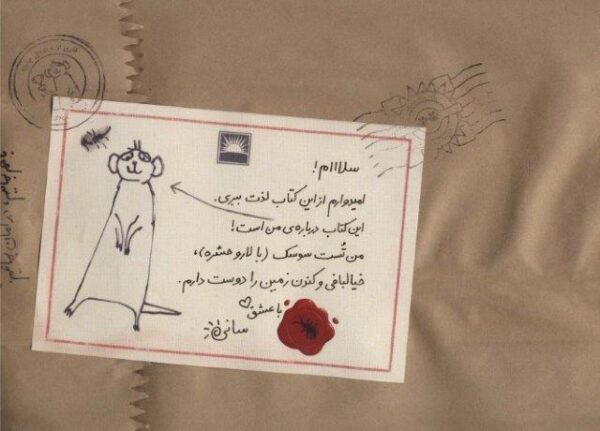 سلاااام!
امیدوارم از این کتاب لذت ببری.
این کتاب درباره‌ی من است!
من تُست سوسک (با لارو حشره)،
خیالبافی و کندن زمین را دوست دارم.
با عشق
سانی